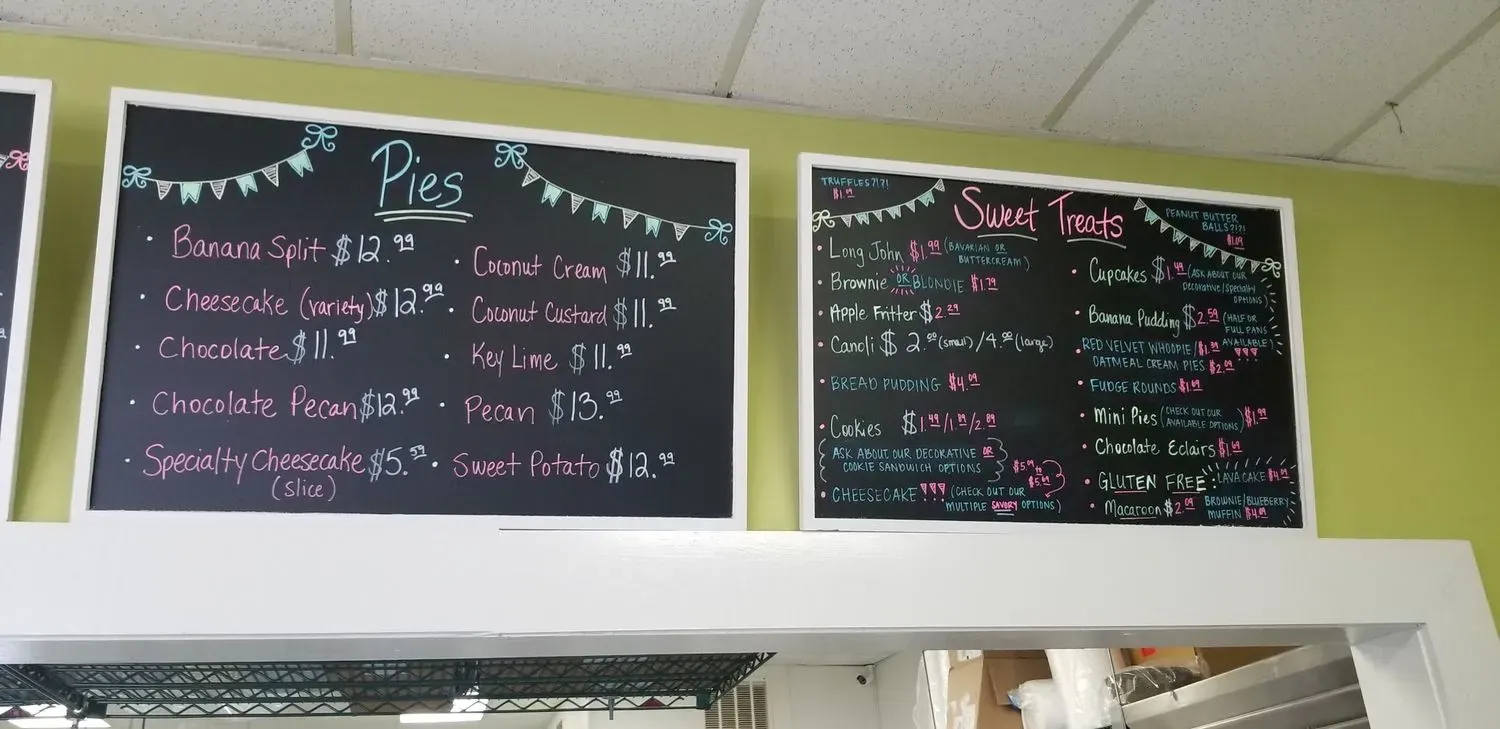 Pies
Banana Split $12.99
Cheesecake (variety) $12.99
Chocolate $11.99
Chocolate Pecan $12.99
Specialty Cheesecake $5.59
(slice)
Coconut Cream $11.99
Coconut Custard $11.99
Key Lime $11.99
Pecan $13.99
Sweet Potato $12.99
TRUFFLES?!?!
Sweet Treats
PEANUT BUTTER
BALLS?!?!
Long John $1.99 (BAVARIAN OR
BUTTERCREAM)
Brownie OR BLONDIE $1.79
Apple Fritter $2.29
Canoli $2.00 (small) /4.00 (large)
BREAD PUDDING $4.09
Cookies $1.49/1.89/2.89
ASK ABOUT OUR DECORATIVE OR
COOKIE SANDWICH OPTIONS
CHEESECAKE (CHECK OUT OUR
MULTIPLE SAVORY OPTIONS)
Cupcakes $1.49 (ASK ABOUT OUR
Decorative/Specialty
OPTIONS)
Banana Pudding $2.59 (HALF OR
FULL PANS
AVAILABLE)
RED VELVET WHOOPIE/$1.39
OATMEAL CREAM PIES $2.09
FUDGE ROUNDS $1.69
Mini Pies (CHECK OUT OUR
AVAILABLE OPTIONS) $1.99
Chocolate Eclairs $1.69
GLUTEN FREE: LAVA CAKE
Macaroon $2.09 BROWNIE/BLUEBERRY
MUFFIN